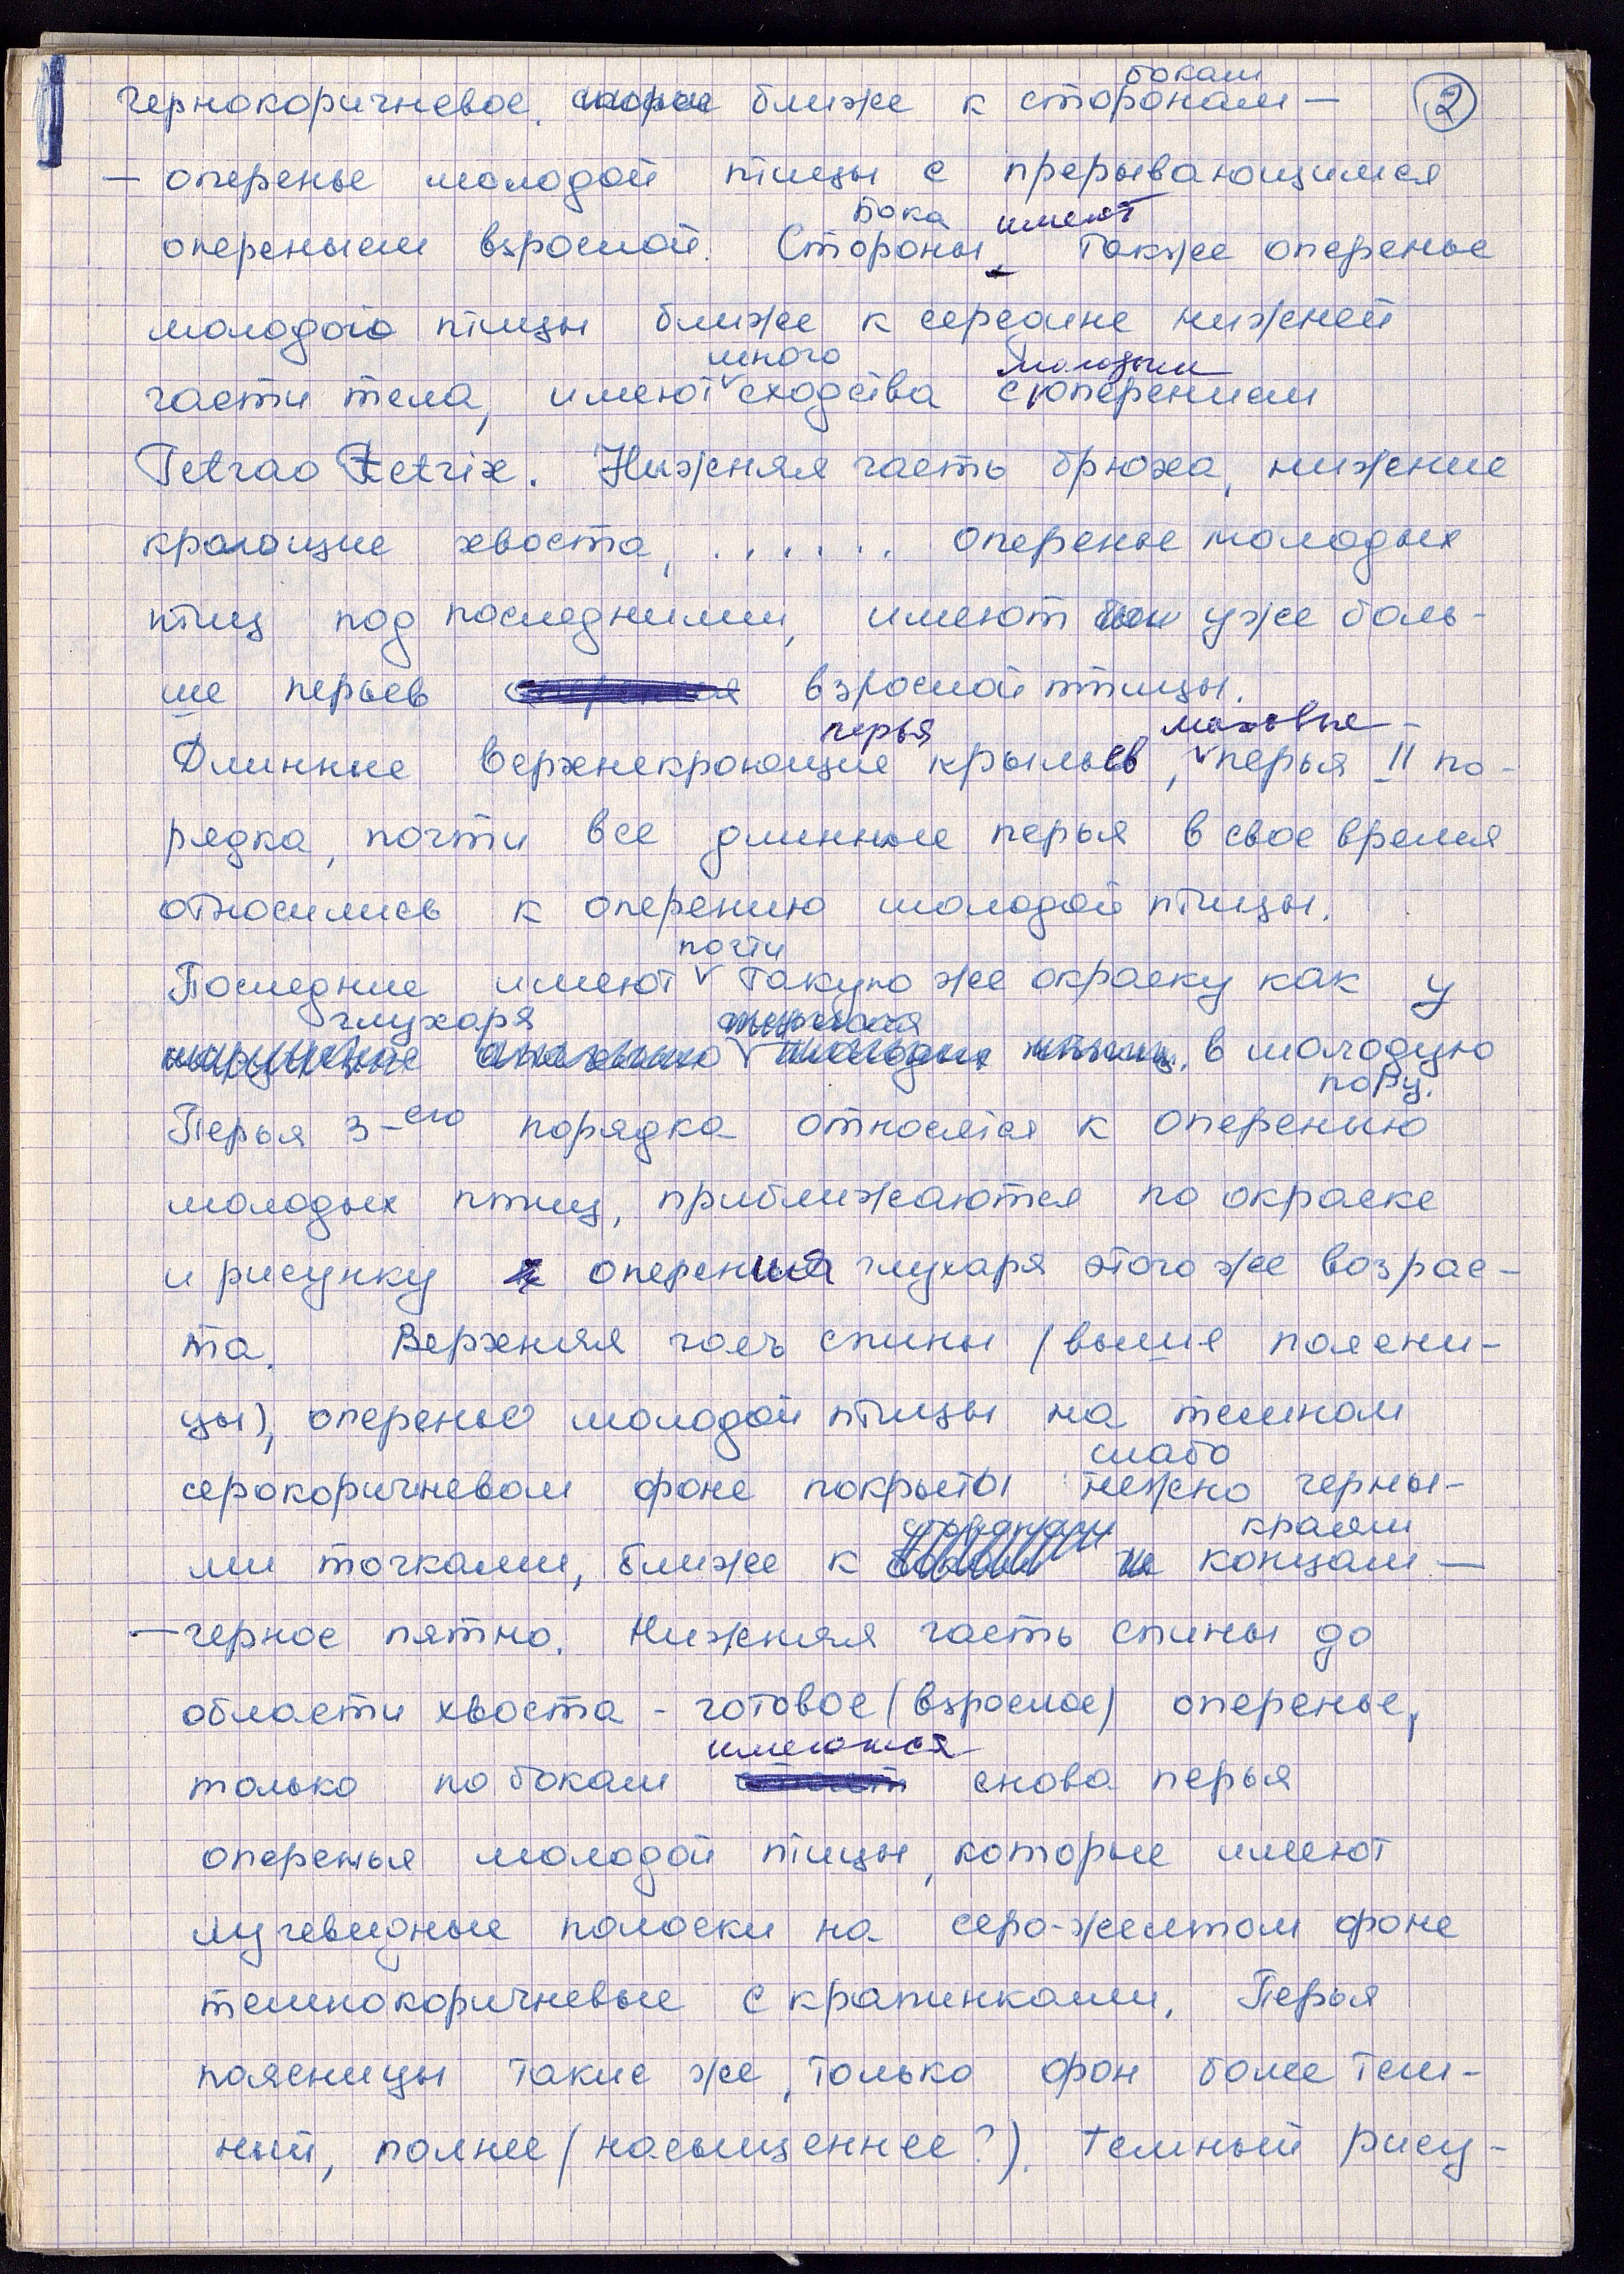 бокам
чернокоричневое. скорее ближе к сторонам — 2
— оперенье молодой птицы с прерывающимся
бока имеют
опереньем взрослой. Стороны, также оперенье
молодого птицы ближе к середине нижней
много молодыми
части тела, имеют сходства с оперением
Tetrao Tetrix. Нижняя часть брюха, нижние
кроющие хвоста, . . . . . . оперенье молодых
птиц под последними, имеют уже боль-
ше перьев взрослой птицы.
перья маховые
Длинные верхнекроющие крыльев, перья II по-
рядка, почти все длинные перья в свое время
относились к оперению молодой птицы.
почти
Последние имеют такую же окраску как у
глухаря
в молодую
пору.
Перья 3-его порядка относятся к оперенью
молодых птиц, приближаются по окраске
и рисунку к оперения глухаря этого же возрас-
та. Верхняя часть спины (выше поясни-
цы), оперенье молодой птицы на темном
слабо
серокоричневом фоне покрыты нежно черны-
краями
ми точками, ближе к концам —
— черное пятно. Нижняя часть спины до
области хвоста - готовое (взрослое) оперенье,
имеются
только по бокам снова перья
оперенья молодой птицы, которые имеют
лучевидные полоски на серо-желтом фоне
темнокоричневые с крапинками. Перья
поясницы такие же, только фон более тем-
ный, полнее (насыщеннее?). Темный рису-